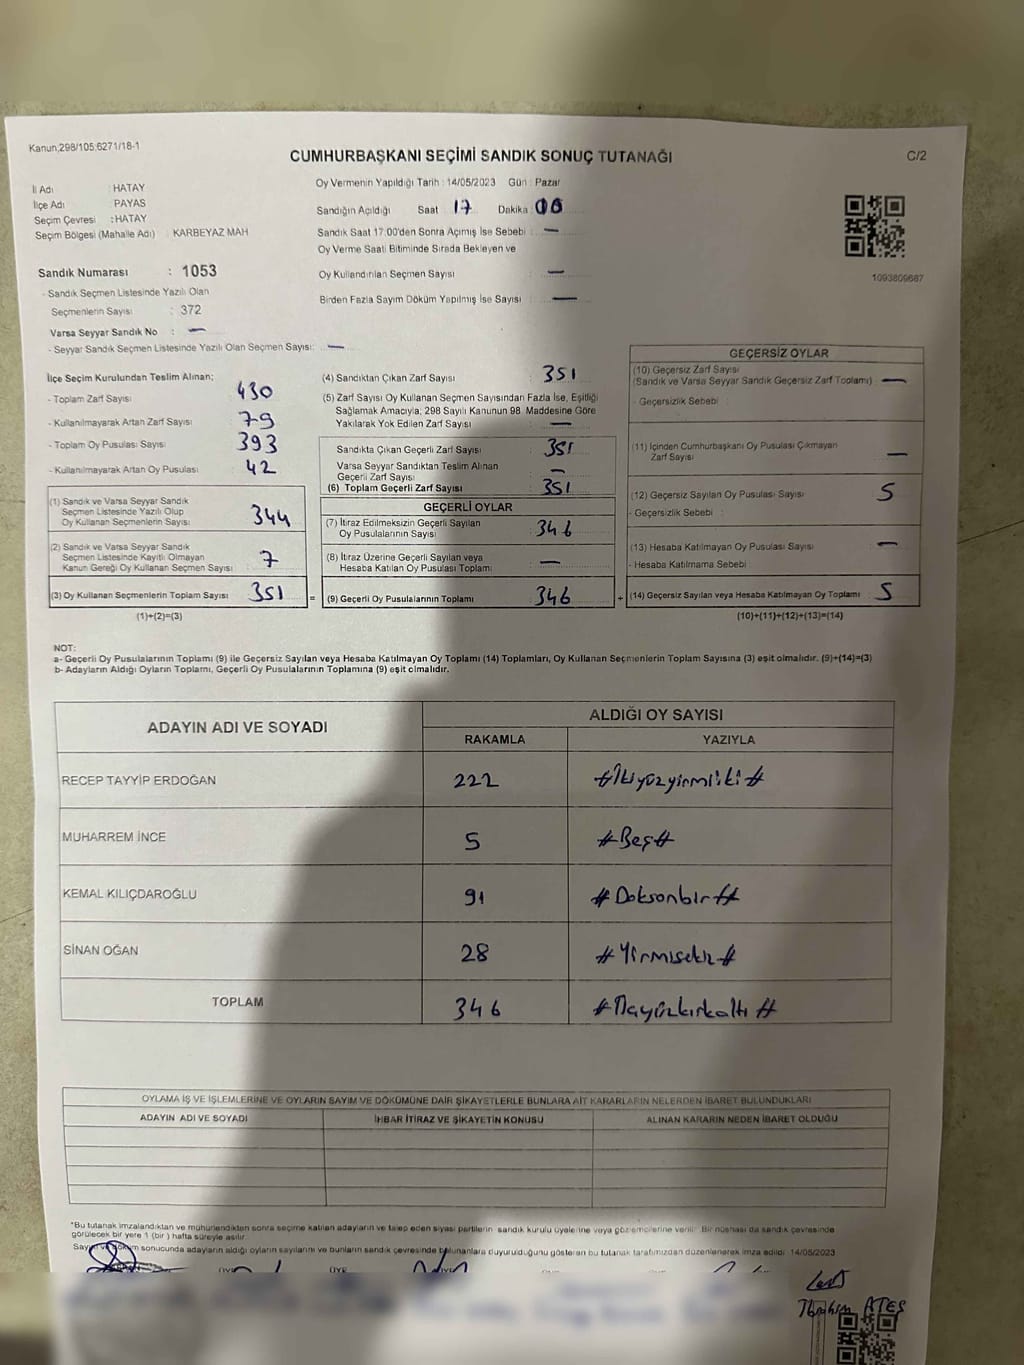 Kanun,298/105;6271/18-1
CUMHURBAŞKANI SEÇİMİ SANDIK SONUÇ TUTANAĞI
C/2
İl Adı : HATAY
İlçe Adı : PAYAS
Seçim Çevresi :HATAY
Seçim Bölgesi (Mahalle Adı) : KARBEYAZ MAH
Oy Vermenin Yapıldığı Tarih : 14/05/2023 Gün : Pazar
Sandığın Açıldığı Saat 17 Dakika 00
Sandık Saat 17:00'den Sonra Açımış İse Sebebi : —
Oy Verme Saati Bitiminde Sırada Bekleyen ve
Oy Kullandırılan Seçmen Sayısı : —
Birden Fazla Sayım Döküm Yapılmış İse Sayısı : —
1093809687
Sandık Numarası : 1053
- Sandık Seçmen Listesinde Yazılı Olan
Seçmenlerin Sayısı : 372
Varsa Seyyar Sandık No : —
- Seyyar Sandık Seçmen Listesinde Yazılı Olan Seçmen Sayısı: —
İlçe Seçim Kurulundan Teslim Alınan;
- Toplam Zarf Sayısı : 430
- Kullanılmayarak Artan Zarf Sayısı : 79
- Toplam Oy Pusulası Sayısı : 393
- Kullanılmayarak Artan Oy Pusulası : 42
(1) Sandık ve Varsa Seyyar Sandık
Seçmen Listesinde Yazılı Olup
Oy Kullanan Seçmenlerin Sayısı : 344
(2) Sandık ve Varsa Seyyar Sandık
Seçmen Listesinde Kayıtlı Olmayan
Kanun Gereği Oy Kullanan Seçmen Sayısı : 7
(3) Oy Kullanan Seçmenlerin Toplam Sayısı : 351
(1)+(2)=(3)
(4) Sandıktan Çıkan Zarf Sayısı : 351
(5) Zarf Sayısı Oy Kullanan Seçmen Sayısından Fazla İse, Eşitliği
Sağlamak Amacıyla; 298 Sayılı Kanunun 98. Maddesine Göre
Yakılarak Yok Edilen Zarf Sayısı : —
Sandıkta Çıkan Geçerli Zarf Sayısı : 351
Varsa Seyyar Sandıktan Teslim Alınan
Geçerli Zarf Sayısı : —
(6) Toplam Geçerli Zarf Sayısı : 351
GEÇERLİ OYLAR
(7) İtiraz Edilmeksizin Geçerli Sayılan
Oy Pusulalarının Sayısı : 346
(8) İtiraz Üzerine Geçerli Sayılan veya
Hesaba Katılan Oy Pusulası Toplamı : —
= (9) Geçerli Oy Pusulalarının Toplamı : 346
GEÇERSİZ OYLAR
(10) Geçersiz Zarf Sayısı
(Sandık ve Varsa Seyyar Sandık Geçersiz Zarf Toplamı) : —
- Geçersizlik Sebebi :
(11) İçinden Cumhurbaşkanı Oy Pusulası Çıkmayan
Zarf Sayısı : —
(12) Geçersiz Sayılan Oy Pusulası Sayısı : 5
- Geçersizlik Sebebi :
(13) Hesaba Katılmayan Oy Pusulası Sayısı : —
- Hesaba Katılmama Sebebi :
+ (14) Geçersiz Sayılan veya Hesaba Katılmayan Oy Toplamı : 5
(10)+(11)+(12)+(13)=(14)
NOT:
a- Geçerli Oy Pusulalarının Toplamı (9) ile Geçersiz Sayılan veya Hesaba Katılmayan Oy Toplamı (14) Toplamları, Oy Kullanan Seçmenlerin Toplam Sayısına (3) eşit olmalıdır. (9)+(14)=(3)
b- Adayların Aldığı Oyların Toplamı, Geçerli Oy Pusulalarının Toplamına (9) eşit olmalıdır.
ADAYIN ADI VE SOYADI
ALDIĞI OY SAYISI
RAKAMLA YAZIYLA
RECEP TAYYİP ERDOĞAN 222 #İkiyüzyirmiiki#
MUHARREM İNCE 5 #Beş#
KEMAL KILIÇDAROĞLU 91 #Doksonbir#
SİNAN OĞAN 28 #Yirmisekiz#
TOPLAM 346 #Üçyüzkırkaltı#
OYLAMA İŞ VE İŞLEMLERİNE VE OYLARIN SAYIM VE DÖKÜMÜNE DAİR ŞİKAYETLERLE BUNLARA AİT KARARLARIN NELERDEN İBARET BULUNDUKLARI
ADAYIN ADI VE SOYADI İHBAR İTİRAZ VE ŞİKAYETİN KONUSU ALINAN KARARIN NEDEN İBARET OLDUĞU
*Bu tutanak imzalandıktan ve mühürlendikten sonra seçime katılan adayların ve talep eden siyasi partilerin sandık kurulu üyelerine veya gözlemcilerine verilir. Bir nüshası da sandık çevresinde
görülecek bir yere 1 (bir) hafta süreyle asılır.
Sayım ve döküm sonucunda adayların aldığı oyların sayılarını ve bunların sandık çevresinde bulunanlara duyurulduğunu gösteren bu tutanak tarafımızdan düzenlenerek imza edildi. 14/05/2023
İbrahim ATEŞ